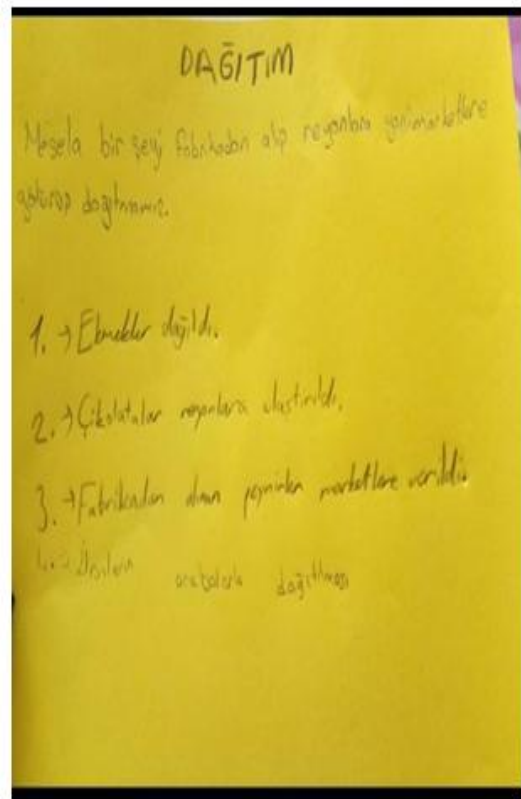 DAĞITIM
Mesela bir şeyi fabrikadan alıp reyonlara yani marketlere
götürüp dağıtmamız.
1. → Ekmekler dağıldı.
2. → Çikolatalar reyonlara ulaştırıldı.
3. → Fabrikadan alınan peynirler marketlere verildi.
4. → Ürünlerin arabalarla dağıtılması